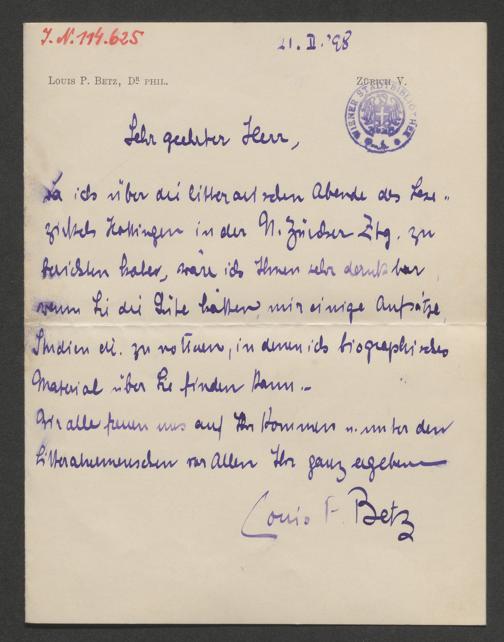 J. N. 114.625
21. II. '98
LOUIS P. BETZ, DR PHIL.
ZÜRICH V.
WIENER STADTBIBLIOTHEK
Sehr geehrter Herr,
Da ich über die litterarischen Abende des Lese-
zirkels Hottingen in der N. Zürcher Ztg. zu
berichten habe, wäre ich Ihnen sehr dankbar
wenn Sie die Güte hätten, mir einige Aufsätze,
Studien etc. zu notieren, in denen ich biographisches
Material über Sie finden kann.-
Wir alle freuen uns auf Ihr Kommen u. unter den
Litteraturmenschen vor Allen Ihr ganz ergebener
Louis P. Betz